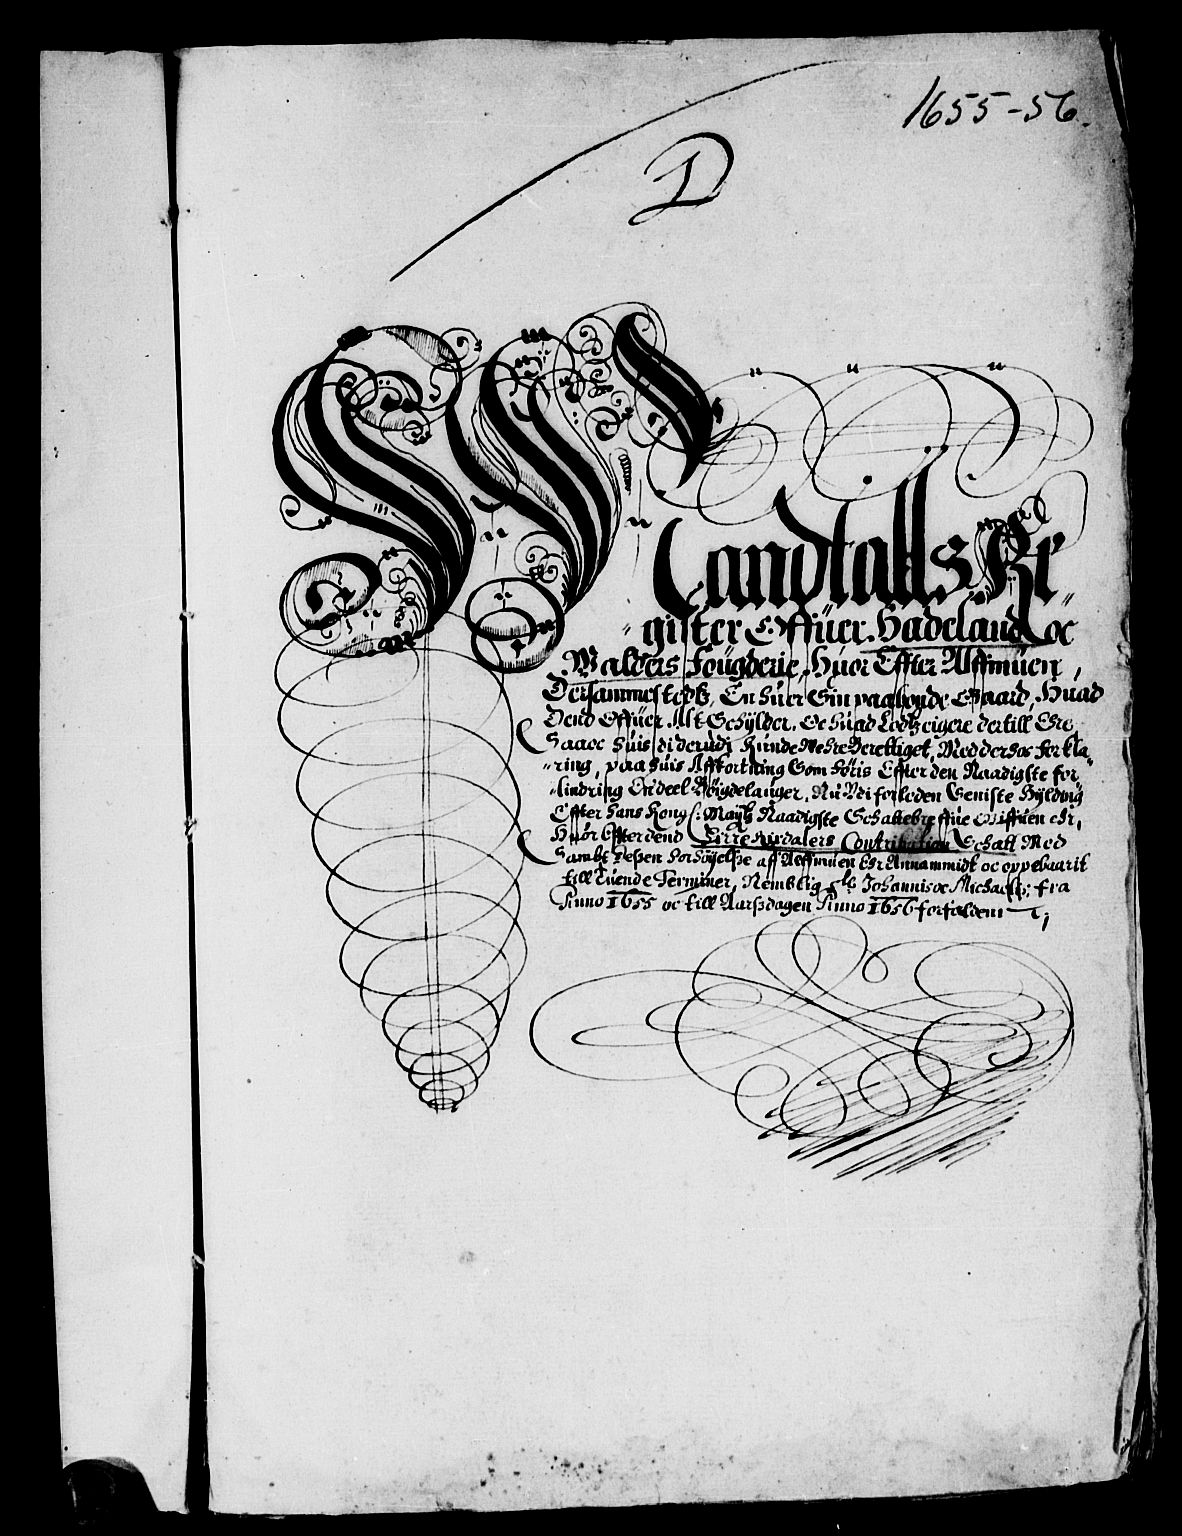 1655-56.
D
Mandtalls Re
gister Offüer Hadeland oc
Walders Fougderie, Huor Effter Allmüen,
Dersammestedß, En huer Sin paaboende Gaard, Huad
Dend Offüer Alt Schylder, Oc huad Lodtzeigere dertill Ere,
Saaoc huis di derudj kunde Were Berettiget, Med derhos forkla-
ring, paa huis Affkortning Som høris Effter den Naadigste for-
lindring En deel Bøigdelauger, Nu Vdi forleden Seniste Hylding
Effter hans Kong: Maytz Naadigste Schattebreffue Giffuen Er,
Huor Effter dend Firre Rixdalers Contribution Schatt Med
Sambt dessen forhøyelse aff Allmüen Er Annammidt oc oppebaarit
till Tuende Terminer, Nemblig Johannis oc Michaelis: fra
Anno 1655 oc till Aarsdagen Anno 1656 forfalden